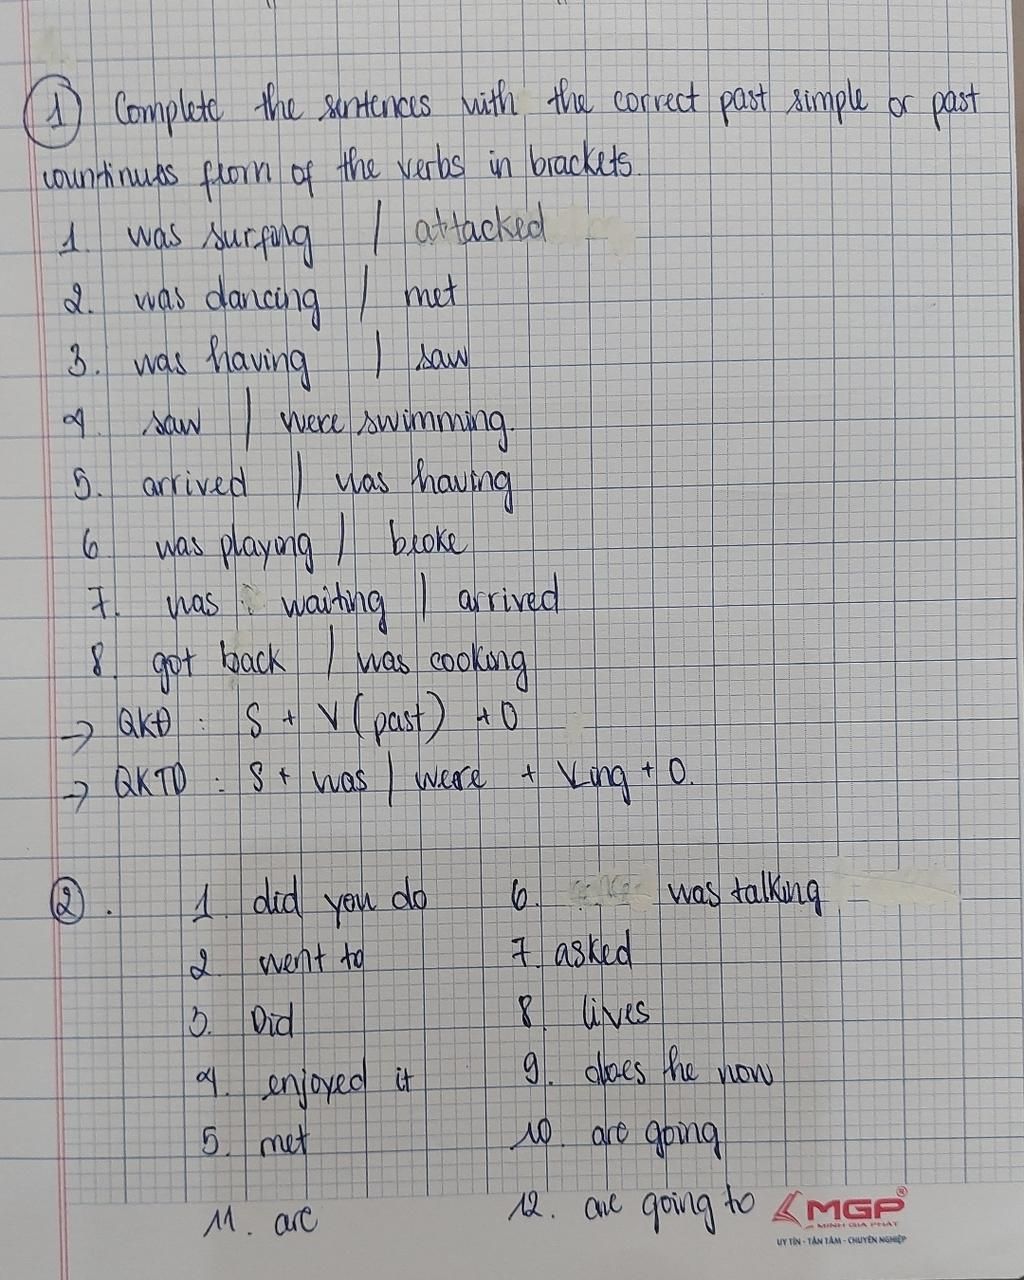 1 Complete the sentences with the correct past simple or past
countinues from of the verbs in brackets.
1. was surfing / attacked
2. was dancing / met
3. was having / saw
4. saw / were swimming.
5. arrived / was having
6 was playing / broke
7. was waiting / arrived
8. got back / was cooking
→ QKĐ : S + V (past) + O
→ QKTD : S + was / were + Ving + O.
2. 1. did you do 6. was talking
2 went to 7. asked
3. Did 8. lives
4. enjoyed it 9. does he now
5. met 10. are going
11. are 12. are going to
MGP®
MINH GIA PHAT
UY TÍN - TẬN TÂM - CHUYÊN NGHIỆP